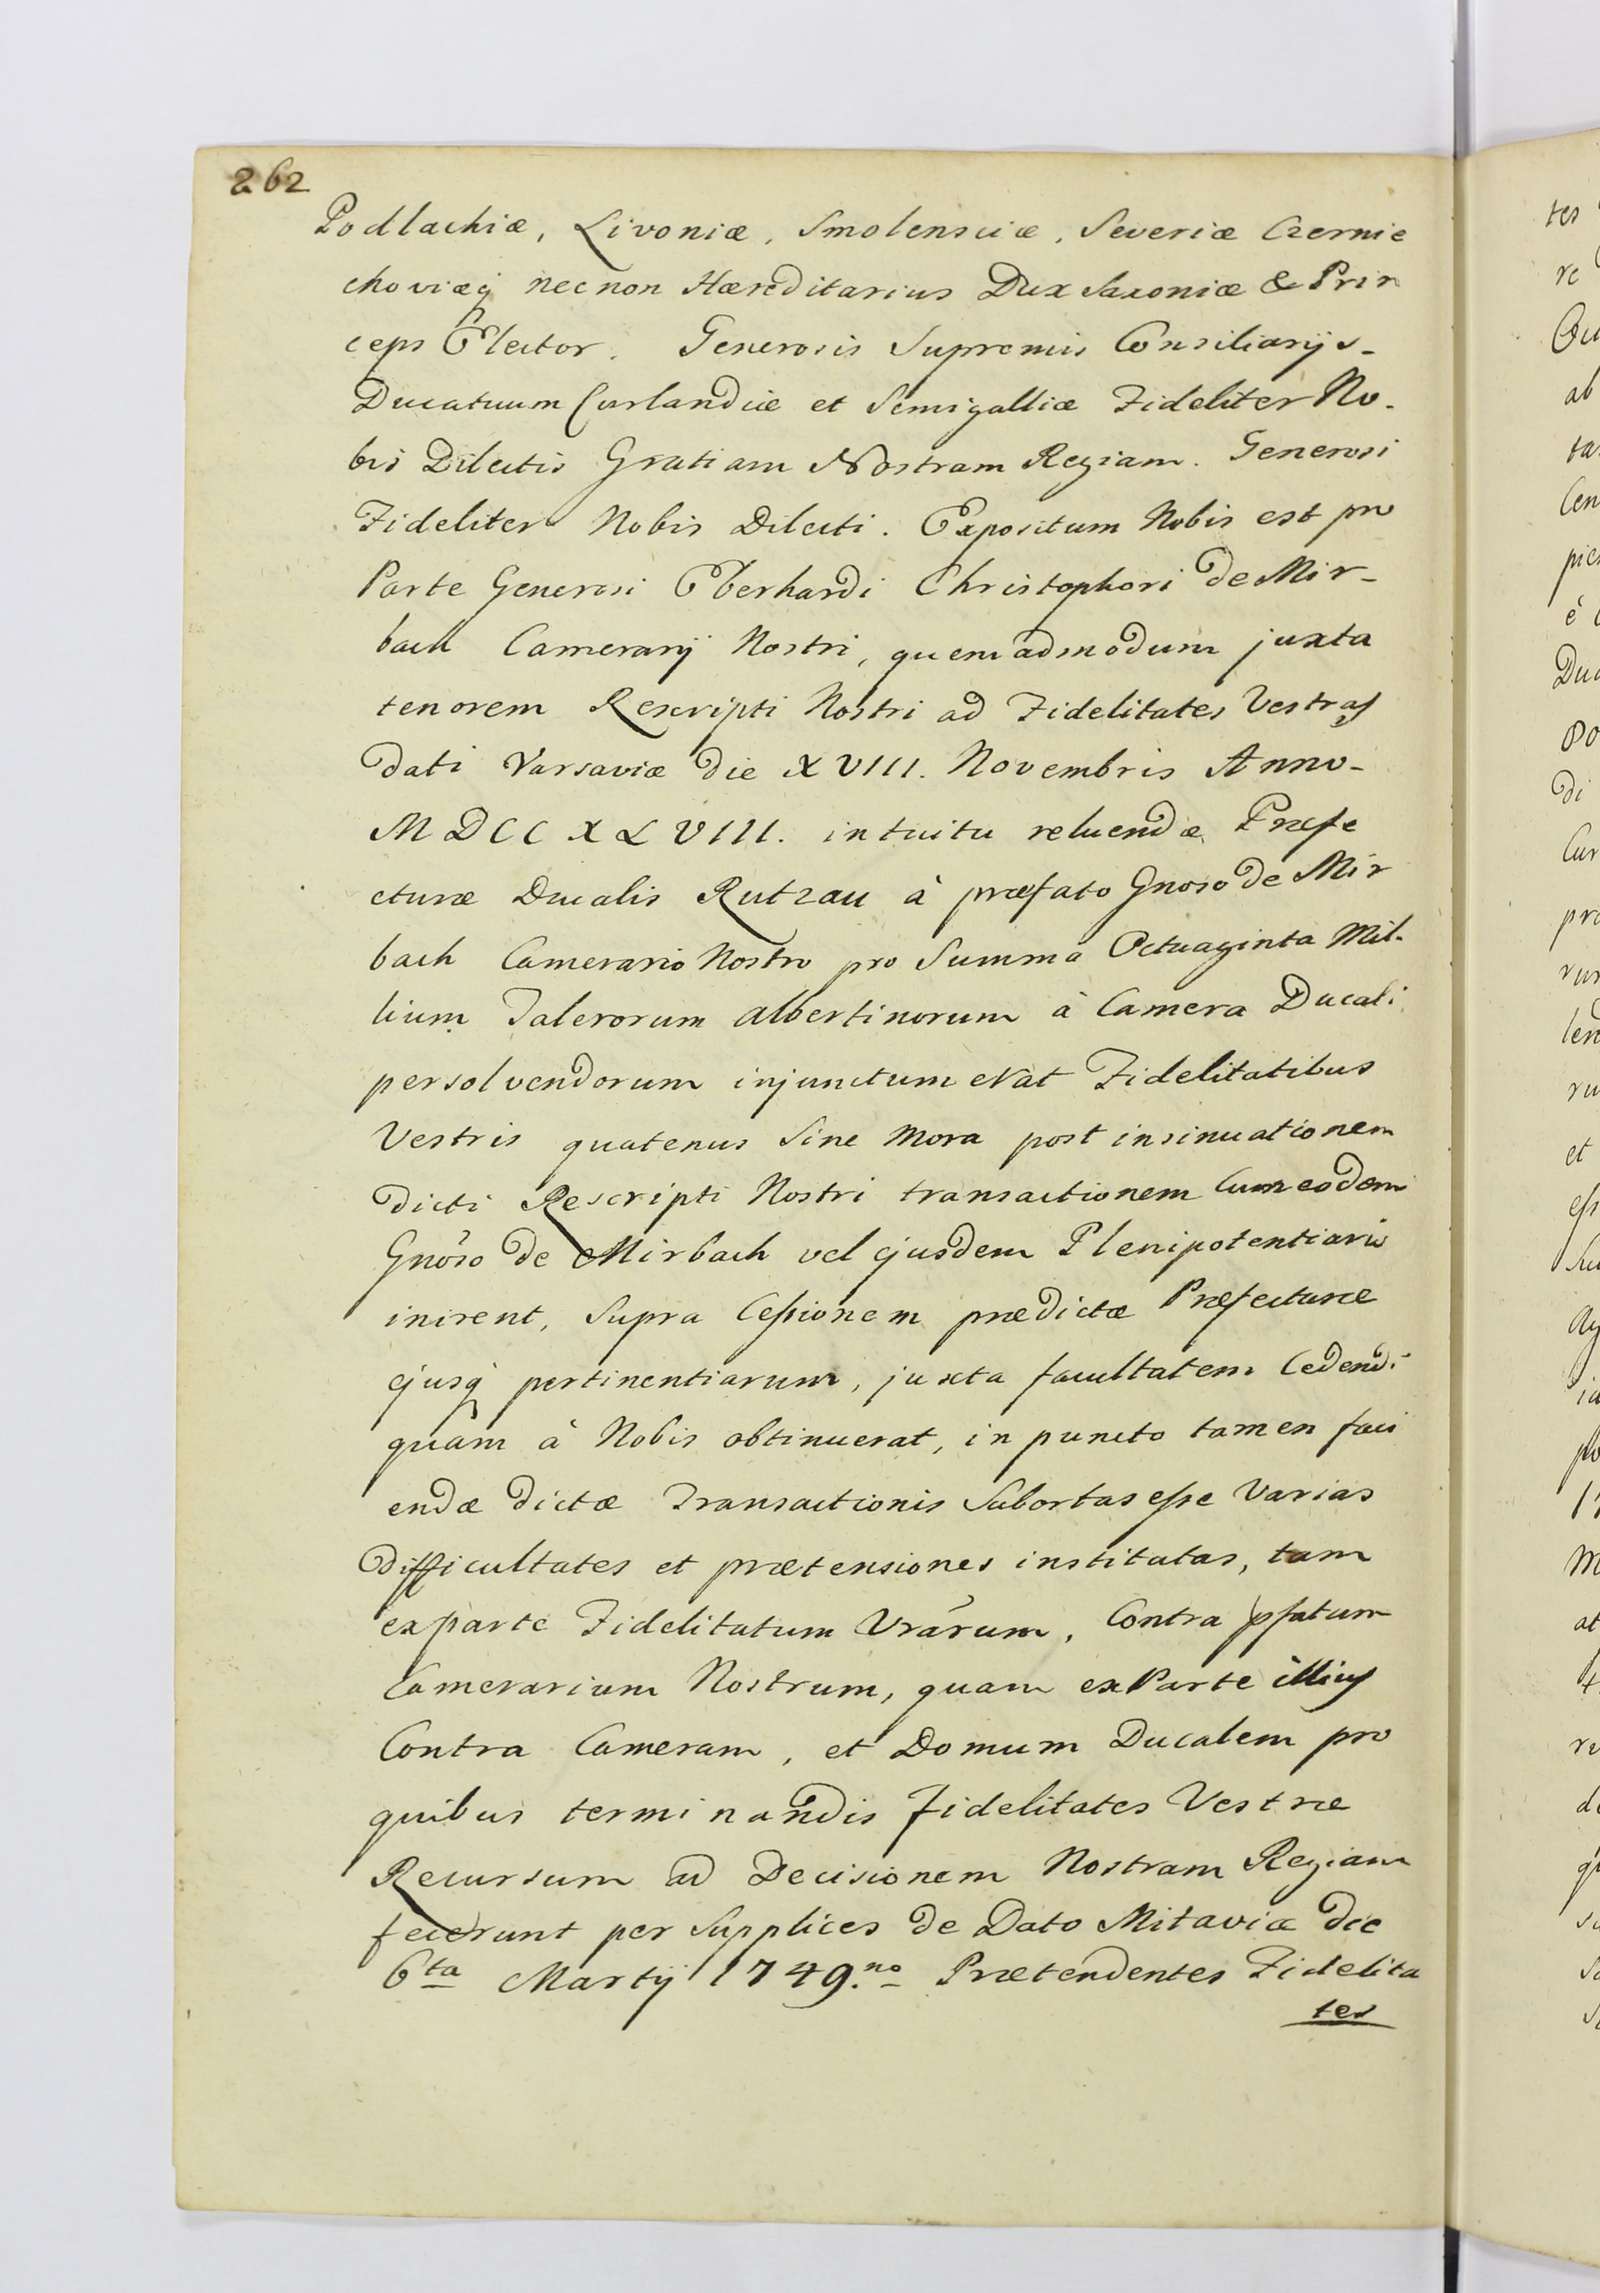 262
Podlachiæ, Livoniæ, Smolensciæ, Severiæ Czernie
choviæq necnon Hæreditarius Dux Saxoniæ & Prin
ceps Elector. Generosis Supremis Consiliarijs-
Ducatuum Curlandiæ et Semigalliæ Fideliter No-
bis Dilectis Gratiam Nostram Regiam. Generosi
Fideliter Nobis Dilecti. Expositum Nobis est pro
Parte Generosi Eberhardi Christophori de Mir-
bach Camerarij Nostri, quemadmodum juxta
tenorem Rescripti Nostri ad Fidelitates Vestras
dati Varsaviæ die XVIII. Novembris Anno-
MDCCXLVIII. intuitu reluendæ Præfe
cturæ Ducalis Rutzau à præfato Gnoso de Mir
bach Camerario Nostro pro Summa Octuaginta Mil-
lium Talerorum Albertinorum à Camera Ducali
persolvendorum injunctum erat Fidelitatibus
Vestris quatenus Sine Mora post insinuationem
dicti Rescripti Nostri transactionem Cum eodem
Gnõso de Mirbach vel ejusdem Plenipotentiario
inirent, Supra Cessionem prædictæ Præfecturæ
ejusq pertinentiarum, juxta facultatem Cedendi
quam à Nobis obtinuerat, in puncto tamen faci
endæ dictæ Transactionis Subortas esse Varias
difficultates et prætensiones institutas, tam
ex parte Fidelitatum Vrãrum, Contra pfatum
Camerarium Nostrum, quam ex Parte illius
Contra Cameram, et Domum Ducalem pro
quibus terminandis Fidelitates Vestræ
Recursum ad Decisionem Nostram Regiam
fecerunt per Supplices de Dato Mitaviæ die
6ta Martij 1749.no Prætendentes Fidelita
tes